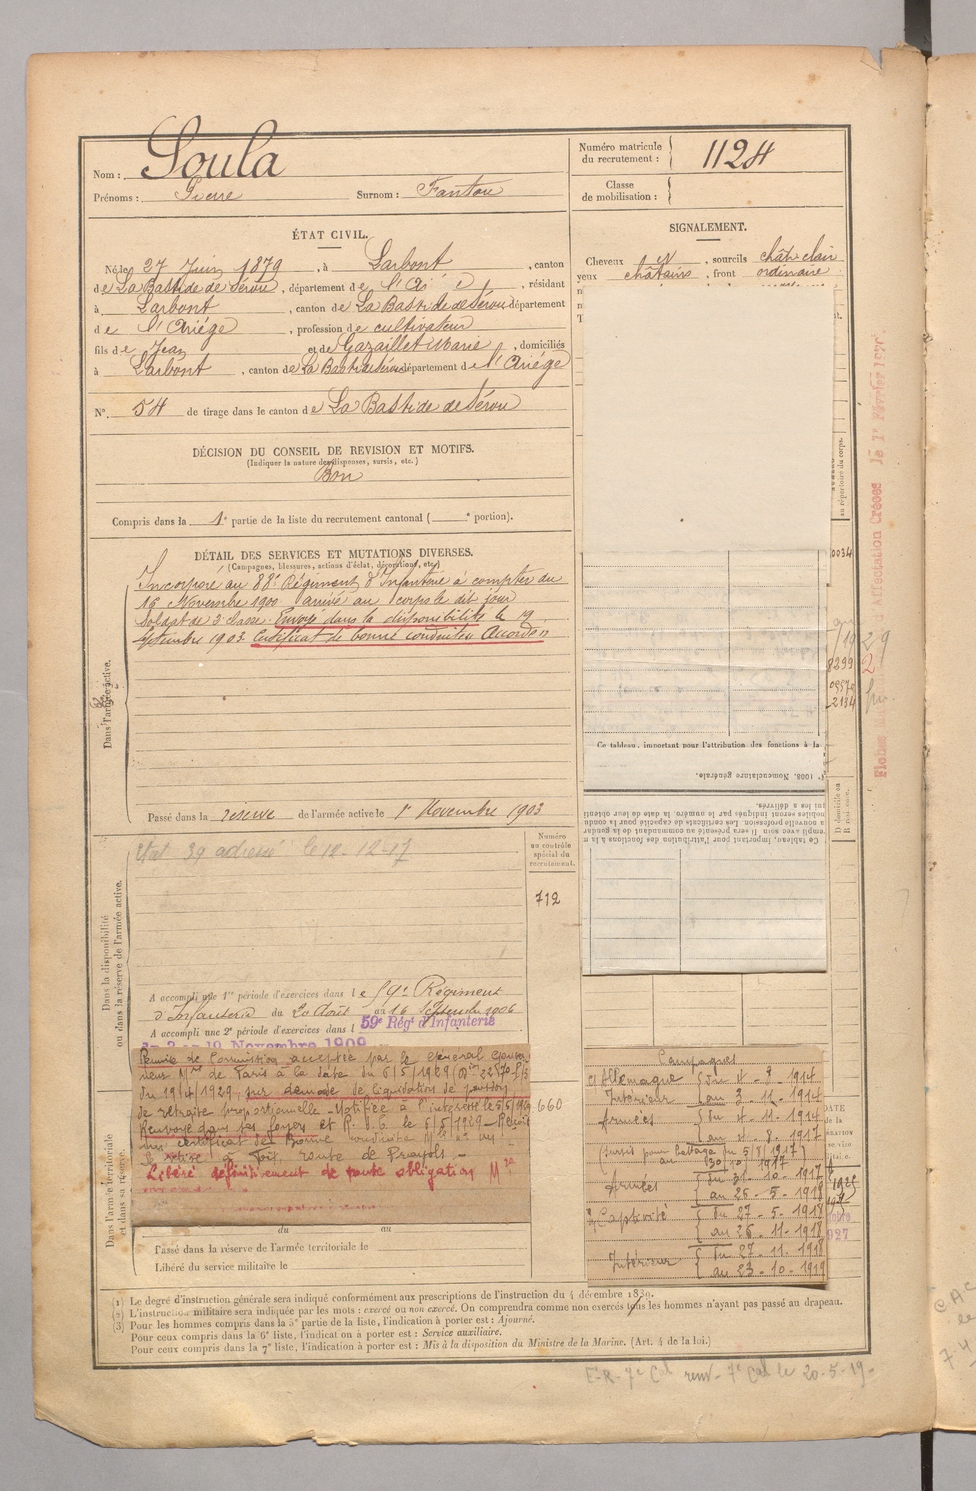 Nom : Soula
Prénoms : Pierre Surnom : Fantou
Numéro matricule
du recrutement : 1124
Classe
de mobilisation :
ÉTAT CIVIL.
Né le 27 Juin 1879, à Larbont, canton
de La Bastide de Sérou, département de l'Ariège, résidant
à Larbont, canton de La Bastide de Sérou département
de l'Ariège, profession de cultivateur
fils de Jean et de Gazaillet Marie, domiciliés
à Larbont, canton de La Bastide de Sérou département de l'Ariège
N° 54 de tirage dans le canton de La Bastide de Sérou
SIGNALEMENT.
Cheveux , sourcils chât. clair
yeux châtains, front ordinaire
DÉCISION DU CONSEIL DE REVISION ET MOTIFS.
(Indiquer la nature des dispenses, sursis, etc.)
Bon
Compris dans la 1e partie de la liste du recrutement cantonal ( e portion).
DÉTAIL DES SERVICES ET MUTATIONS DIVERSES.
(Campagnes, blessures, actions d'éclat, décorations, etc.)
Incorporé au 88e Régiment d'Infanterie à compter du
16 Novembre 1900 arrivé au corps le dit jour
Soldat de 2e classe. Envoyé dans la disponibilité le 19
Septembre 1903 Certificat de bonne conduite Accordé
Dans l'armée active.
Passé dans la réserve de l'armée active le 1er Novembre 1903
Etat 39 adressé le 12-12-17
Numéro
au contrôle
spécial du
recrutement.
712
Dans la disponibilité
ou dans la réserve de l'armée active.
A accompli une 1re période d'exercices dans le 59e Régiment
d'Infanterie du 20 Août au 16 Septembre 1906
A accompli une 2e période d'exercices dans l 59e Régt d'Infanterie
du 2 au 19 Novembre 1909
Remis de Commission acceptée par le Général Gouver
neur Mre de Paris à la date du 6/5/1929
du 19/4/1929, sur demande de liquidation de pension
de retraite proportionnelle - Notifiée à l'intéressé le 5/5/1929
Renvoyé dans ses foyers et R. d. C. le 6/5/1929
certificat de Bonne conduite
Se retire à Foix, route de
Libéré définitivement de toute obligation Mre
660
Dans l'armée territoriale
et dans sa réserve.
du au
Passé dans la réserve de l'armée territoriale le
Libéré du service militaire le
Ce tableau, important pour l'attribution des fonctions à la
N° 1008. Nomenclature générale.
au répertoire du corps.
Fiches Affectation Créées le 1er Février
Campagnes
c/ Allemagne
Intérieur { du 4 - 8 - 1914
{ au 3 - 11 - 1914
Armées { du 4 - 11 - 1914
{ au 4 - 8 - 1917
(sursis pour battage du 5/8/1917)
au 30/10/1917
Armées { du 31 - 10 - 1917
{ au 26 - 5 - 1918
Captivité { du 27 - 5 - 1918
{ au 26 - 11 - 1918
Intérieur { du 27 - 11 - 1918
{ au 23 - 10 - 1919
(1) Le degré d'instruction générale sera indiqué conformément aux prescriptions de l'instruction du 4 décembre 1889.
(2) L'instruction militaire sera indiquée par les mots : exercé ou non exercé. On comprendra comme non exercés tous les hommes n'ayant pas passé au drapeau.
(3) Pour les hommes compris dans la 5e partie de la liste, l'indication à porter est : Ajourné.
Pour ceux compris dans la 6e liste, l'indication à porter est : Service auxiliaire.
Pour ceux compris dans la 7e liste, l'indication à porter est : Mis à la disposition du Ministre de la Marine. (Art. 4 de la loi.)